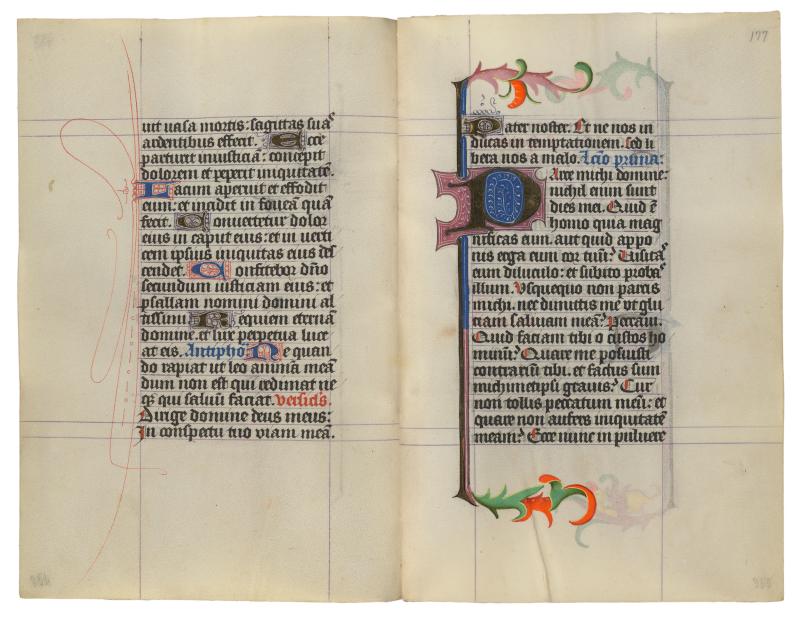 uit uasa mortis: sagittas suas
ardentibus effecit. Ecce
parturit iniusticiã: concepit
dolorem et peperit iniquitatẽ.
Lacum aperuit et effodit
eum: et incidit in foueã quã
fecit. Conuertetur dolor
eius in caput eius: et in uerti
cem ipsius iniquitas eius des
cendet. Confitebor dño
secundum iusticiam eius: et
psallam nomini domini al
tissimi Requiem eternã
domine. et lux perpetua luce
at eis. Antipho Ne quan
do rapiat ut leo animã meã
dum non est qui redimat ne
qꝫ qui saluũ faciat. versicls.
Dirige domine deus meus:
In conspectu tuo viam meã.
177
Pater noster. Et ne nos in
ducas in temptationem. sed li
bera nos a malo. Lc̃io prima:
Parce michi domine:
nichil enim sunt
dies mei. Quid ẽ
homo quia mag
nificas eum. aut quid appo
nis erga eum cor tuũ? Uisitas
eum diluculo: et subito probas
illum. Usquequo non parcis
michi. nec dimittis me ut glu
ciam saliuam meã? Peccaui.
Quid faciam tibi o custos ho
minũ? Quare me posuisti
contrariũ tibi. et factus sum
michimetipsi grauis? Cur
non tollis peccatum meũ: et
quare non aufers iniquitatẽ
meam? Ecce nunc in puluere